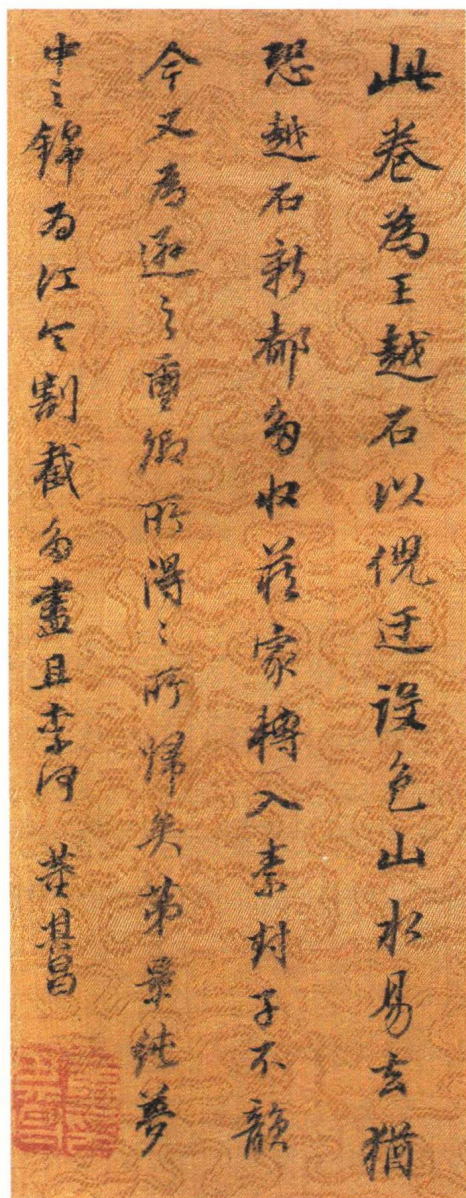 此卷為王越石以倪迂設色山水易去猶
恐越石新都多收藏家轉入素封子不韻
今又為遜之璽卿所得〻所歸矣第景純夢
中之錦為江令割截多盡且奈何 董其昌